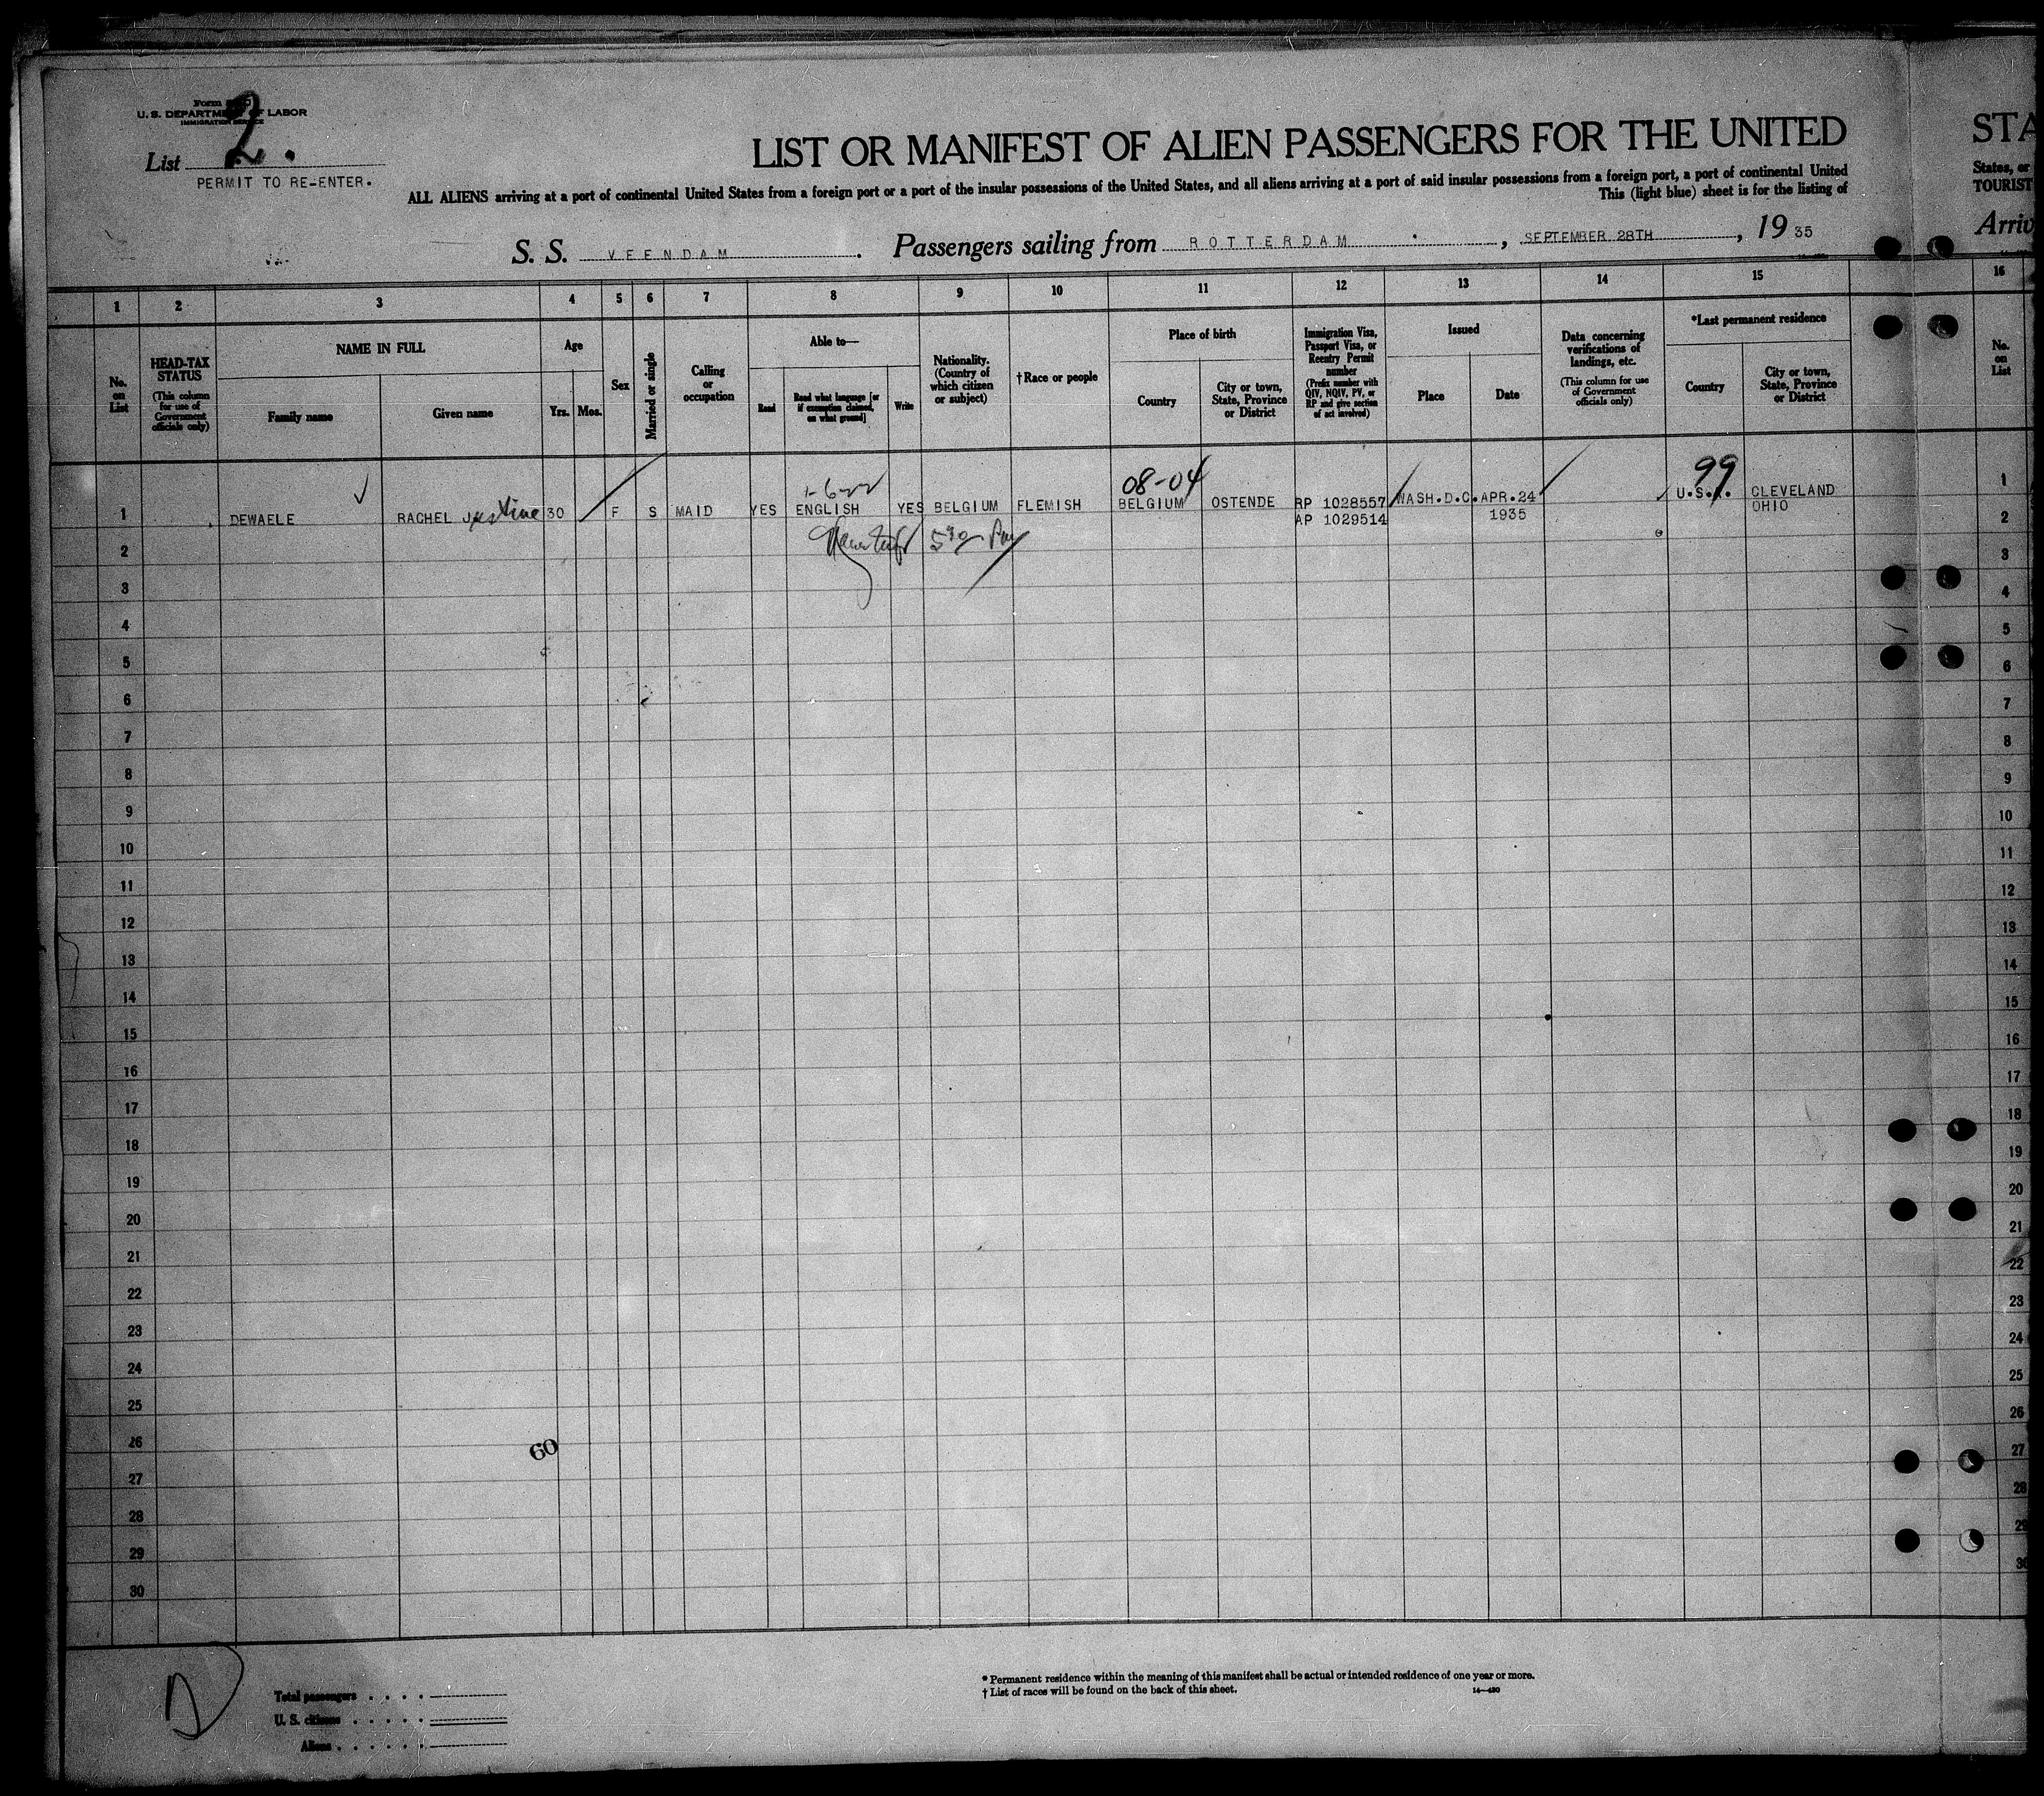 Form
U. S. DEPARTMENT OF LABOR
IMMIGRATION SERVICE
List 2.
PERMIT TO RE-ENTER.
LIST OR MANIFEST OF ALIEN PASSENGERS FOR THE UNITED
STA
ALL ALIENS arriving at a port of continental United States from a foreign port or a port of the insular possessions of the United States, and all aliens arriving at a port of said insular possessions from a foreign port, a port of continental United
States, or
This (light blue) sheet is for the listing of
TOURIST
S. S. VEENDAM. Passengers sailing from ROTTERDAM, SEPTEMBER 28TH, 19 35
Arriv
1 2 3 4 5 6 7 8 9 10 11 12 13 14 15 16
No. on List
HEAD-TAX STATUS
(This column for use of Government officials only)
NAME IN FULL
Family name
Given name
Age
Yrs. Mos.
Sex
Married or single
Calling or occupation
Able to—
Read
Read what language [or if exemption claimed, on what ground]
Write
Nationality. (Country of which citizen or subject)
†Race or people
Place of birth
Country
City or town, State, Province or District
Immigration Visa, Passport Visa, or Reentry Permit number
(Prefix number with QIV, NQIV, PV, or RP and give section of act involved)
Issued
Place
Date
Data concerning verifications of landings, etc.
(This column for use of Government officials only)
*Last permanent residence
Country
City or town, State, Province or District
No. on List
08-04 99
1 DEWAELE RACHEL Justine 30 F S MAID YES ENGLISH YES BELGIUM FLEMISH BELGIUM OSTENDE RP 1028557 WASH.D.C. APR.24 U.S.A. CLEVELAND 1
AP 1029514 1935 OHIO
2 2
3 3
4 4
5 5
6 6
7 7
8 8
9 9
10 10
11 11
12 12
13 13
14 14
15 15
16 16
17 17
18 18
19 19
20 20
21 21
22 22
23 23
24 24
25 25
26 60 26
27 27
28 28
29 29
30 30
D
Total passengers
U. S. citizens
Aliens
* Permanent residence within the meaning of this manifest shall be actual or intended residence of one year or more.
† List of races will be found on the back of this sheet.
14—430